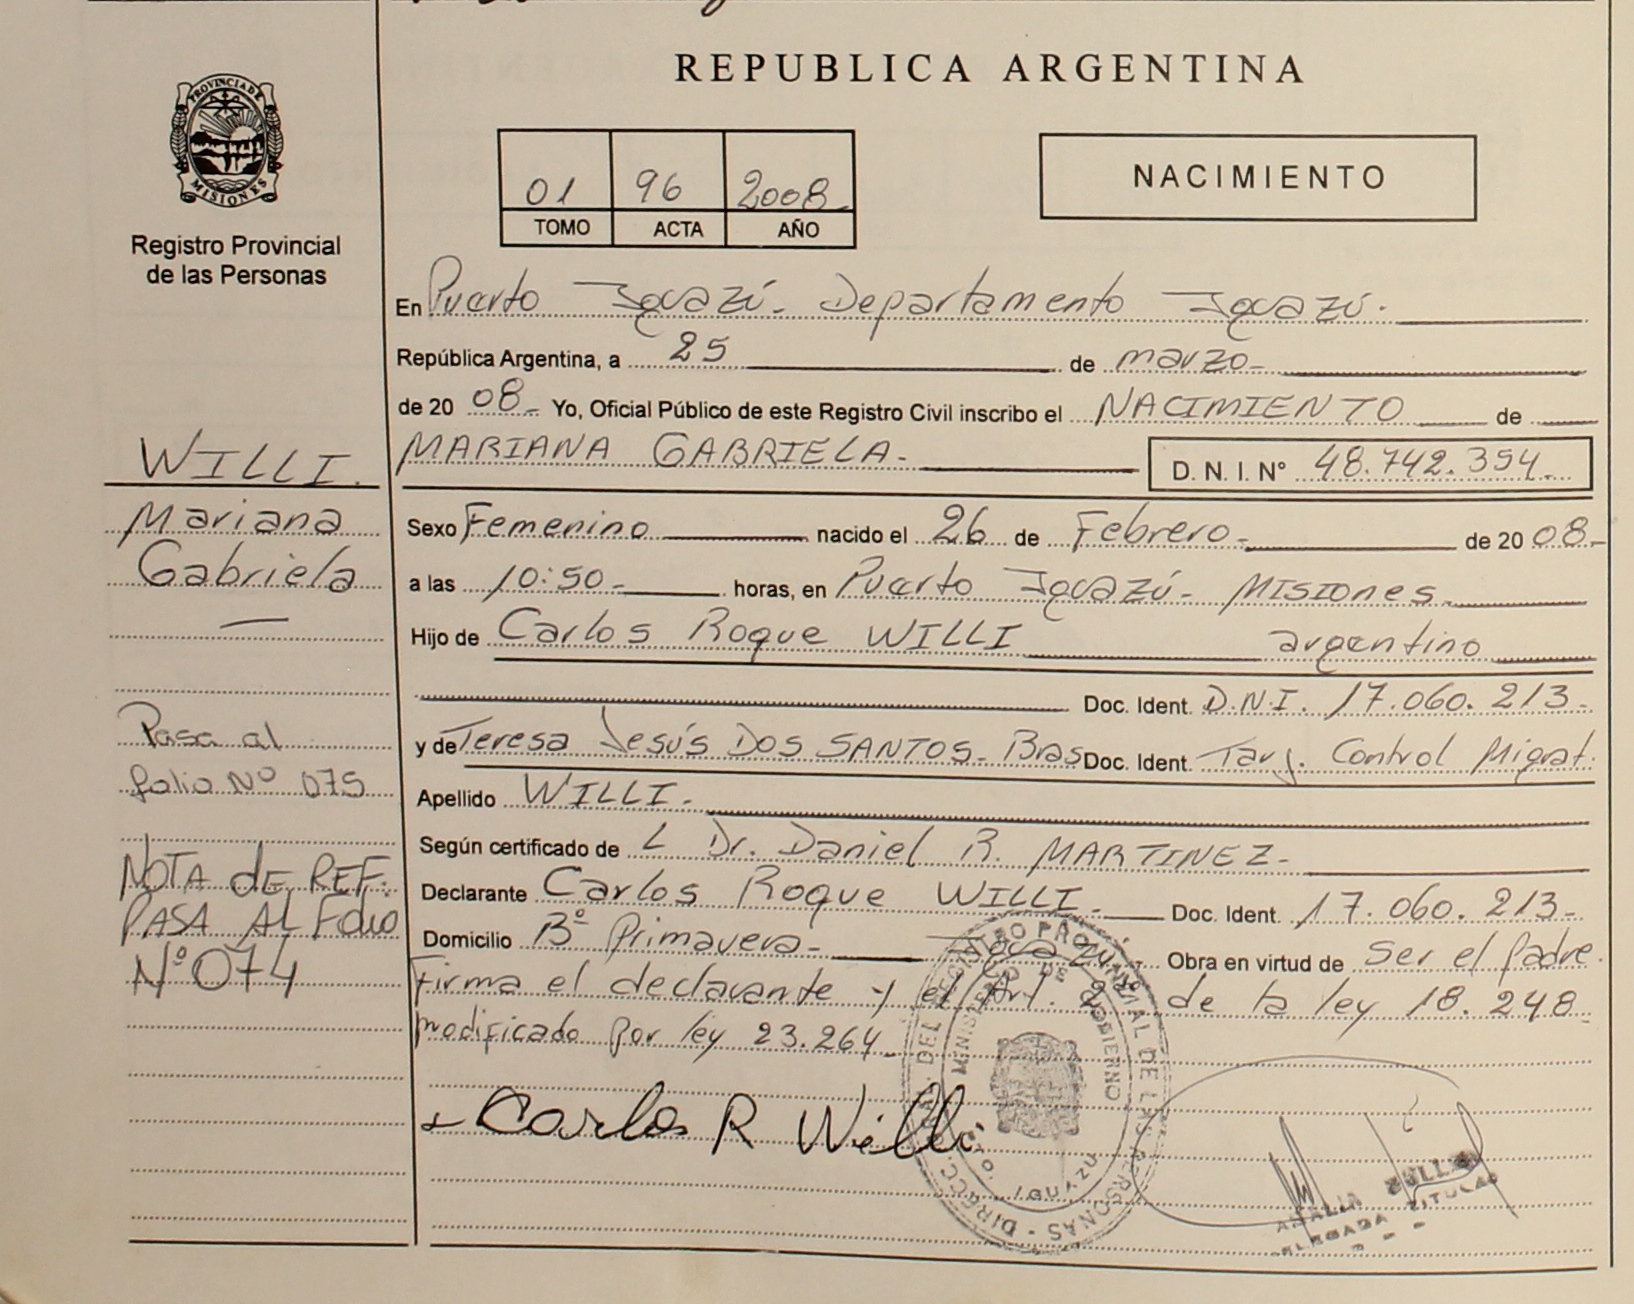 REPUBLICA ARGENTINA
PROVINCIA DE
MISIONES
Registro Provincial
de las Personas
01 96 2008
TOMO ACTA AÑO
NACIMIENTO
En Puerto Iguazú - Departamento Iguazú.
República Argentina, a 25 de marzo
de 20 08 Yo, Oficial Público de este Registro Civil inscribo el NACIMIENTO de
MARIANA GABRIELA - D. N. I. Nº 48.742.354.
WILLI.
Mariana
Gabriela
Sexo Femenino nacido el 26 de Febrero de 20 08
a las 10:50 horas, en Puerto Iguazú - Misiones
Hijo de Carlos Roque WILLI argentino
Doc. Ident. D.N.I. 17.060.213
y de Teresa Jesús DOS SANTOS - Bras Doc. Ident. Tarj. Control Migrat.
Pasa al
folio Nº 075
Apellido WILLI.
Según certificado de L Dr. Daniel R. MARTINEZ
NOTA de REF.
PASA AL Folio
Nº 074
Declarante Carlos Roque WILLI Doc. Ident. 17.060.213
Domicilio Bº Primavera - Iguazú Obra en virtud de Ser el padre.
Firma el declarante y el Art. de la ley 18.248
modificado por ley 23.264
Carlos R Willi
DIRECC. DEL REGISTRO PROVINCIAL DE LAS PERSONAS
MINISTERIO DE GOBIERNO
IGUAZU
ANALIA
DELEGADA TITULAR